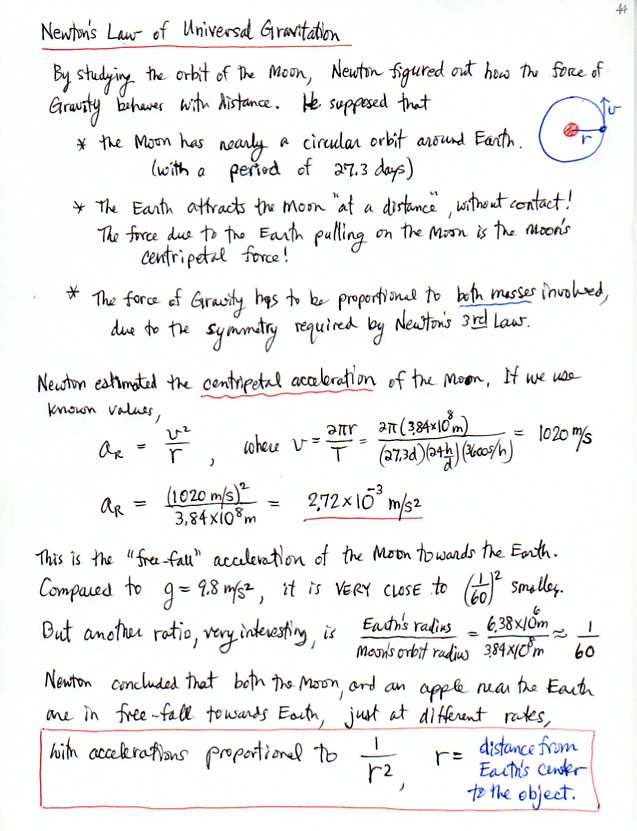 44
Newton's Law of Universal Gravitation
By studying the orbit of the Moon, Newton figured out how the force of
Gravity behaves with distance. He supposed that
v
r
* the Moon has nearly a circular orbit around Earth.
(with a period of 27.3 days)
* The Earth attracts the Moon "at a distance", without contact!
The force due to the Earth pulling on the Moon is the Moon's
centripetal force!
* The force of Gravity has to be proportional to both masses involved,
due to the symmetry required by Newton's 3rd Law.
Newton estimated the centripetal acceleration of the Moon. If we use
known values,
a_R = v²/r, where v = 2πr/T = 2π(3.84×10⁸m)/(27.3d)(24h/d)(3600s/h) = 1020 m/s
a_R = (1020 m/s)²/3.84×10⁸m = 2.72×10⁻³ m/s²
This is the "free-fall" acceleration of the Moon towards the Earth.
Compared to g = 9.8 m/s², it is VERY CLOSE to (1/60)² smaller.
But another ratio, very interesting, is Earth's radius/Moon's orbit radius = 6.38×10⁶m/3.84×10⁸m ≈ 1/60
Newton concluded that both the Moon, and an apple near the Earth
are in free-fall towards Earth, just at different rates,
with accelerations proportional to 1/r², r = distance from
Earth's center
to the object.